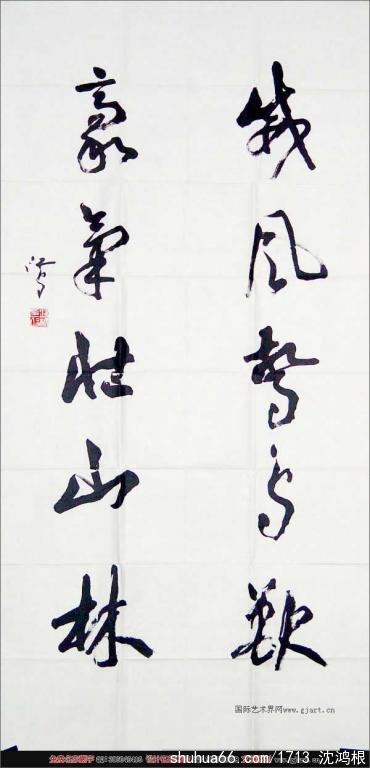 威风驚鸟獸
豪氣壯山林
国际艺术界网www.gjart.cn
shuhua66.com/1713 沈鸿根